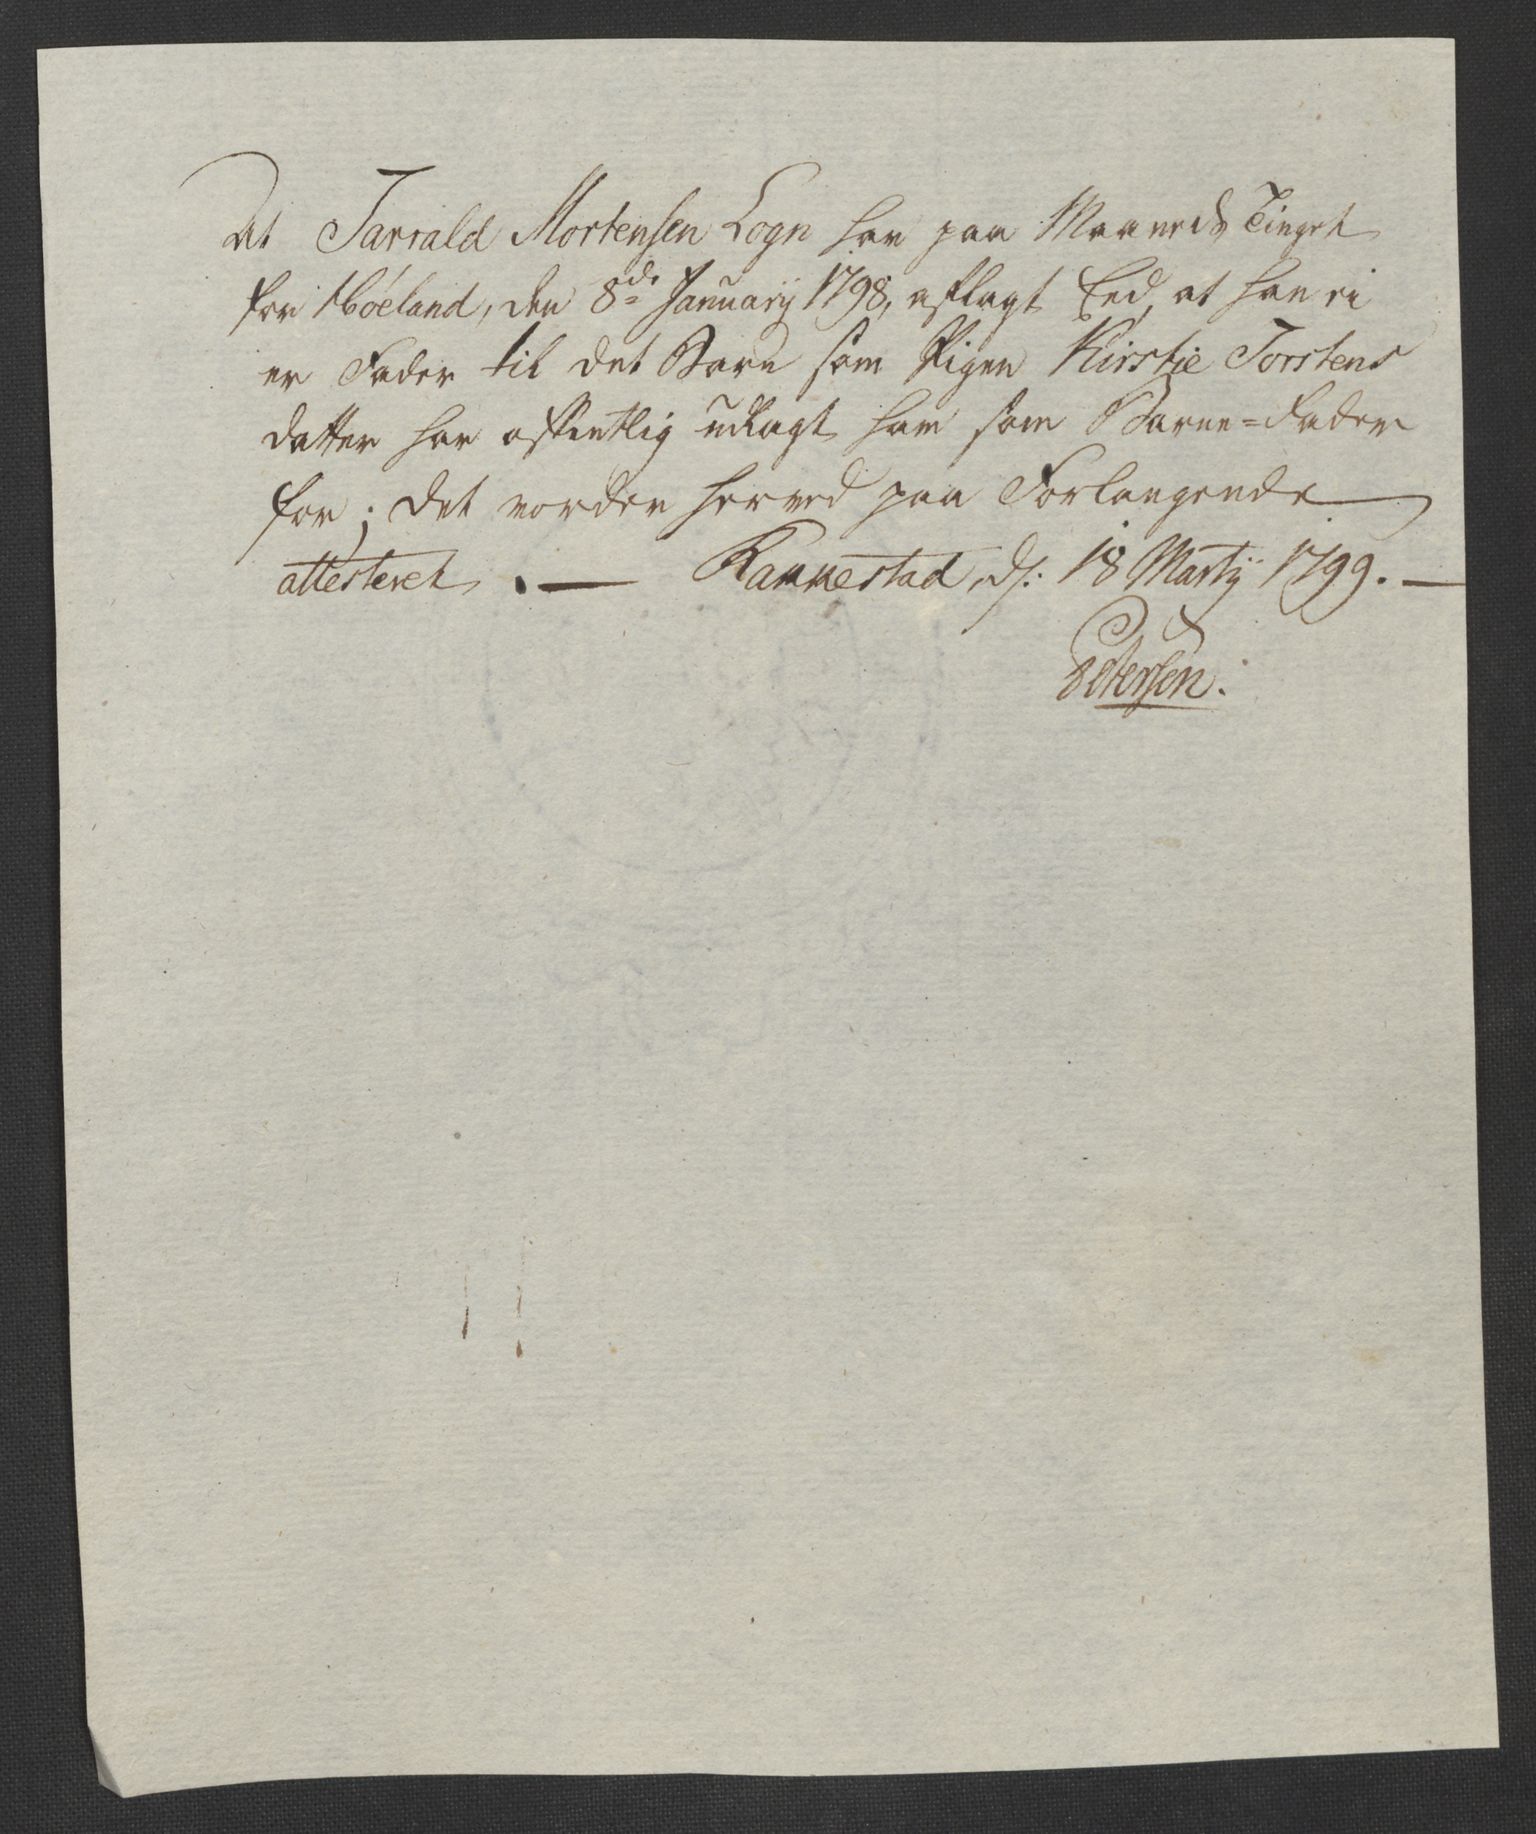 At Tarrald Mortensen Logn har paa Maaneds Tinget
for Höeland, den 8de January 1798, aflagt Eed, at han ei
er Fader til det Barn som Pigen Kirstie Torstens
datter har offentlig udlagt ham som Barne=Fader
for; det vorder herved paa Forlangende
attesteret. — Rannestad, ds: 18 Martij 1799. —
Petersen.